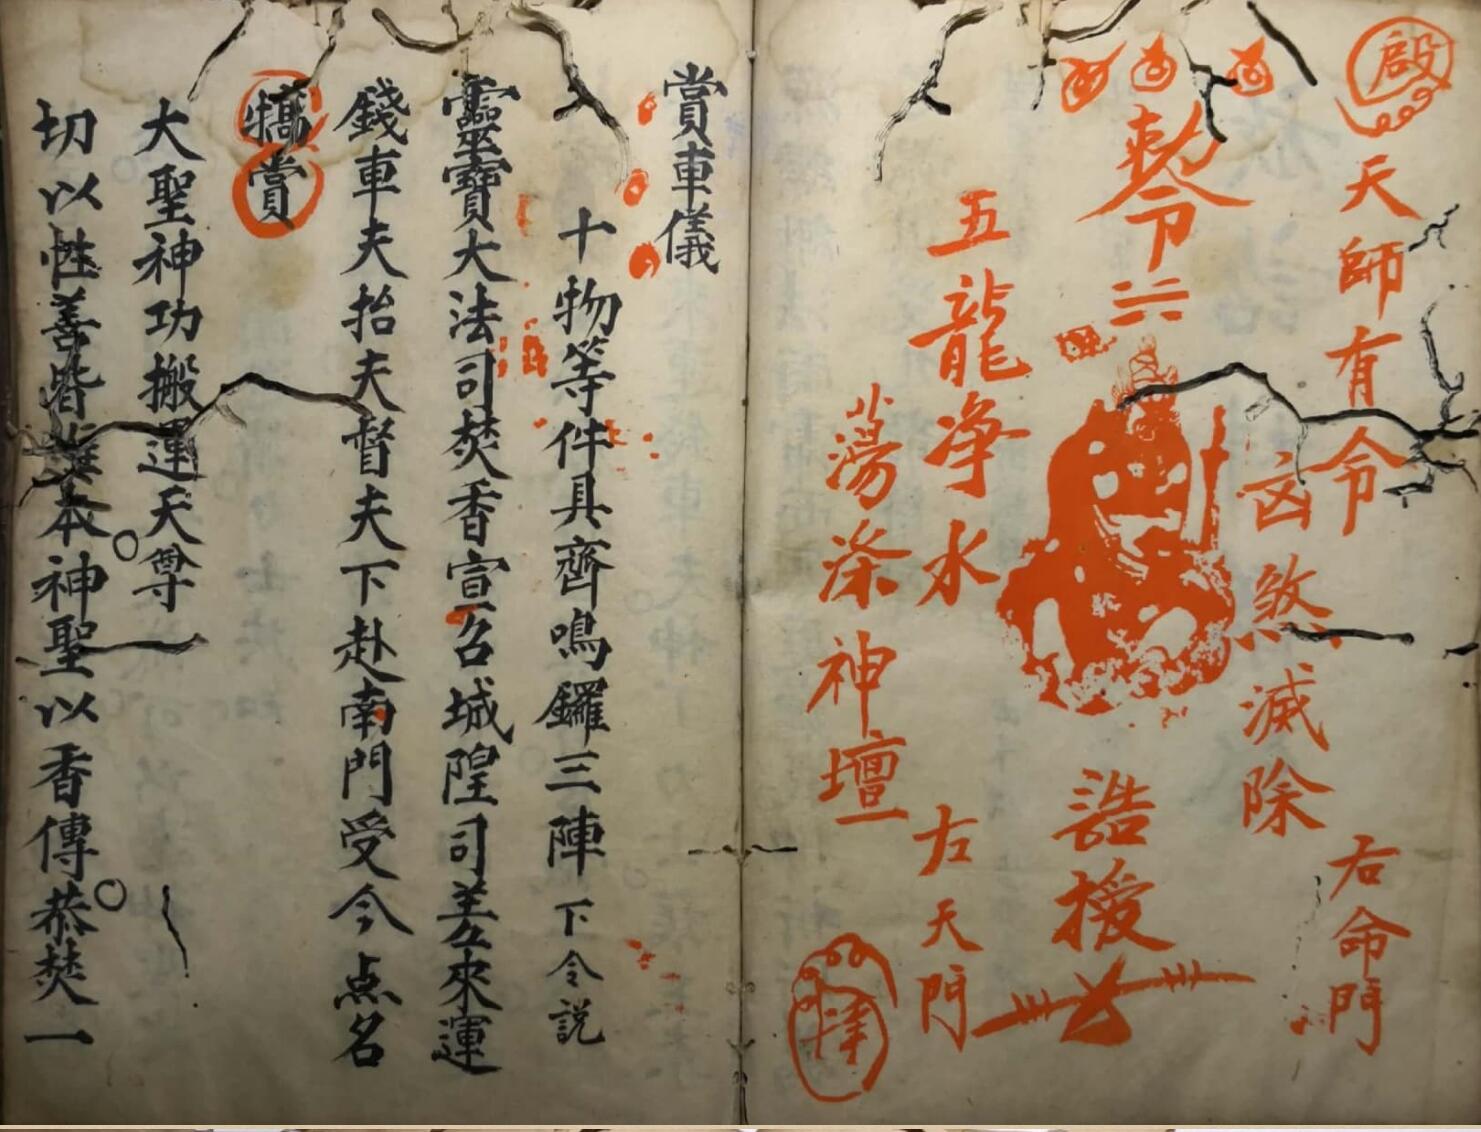 啟
天師有令
右命門
凶煞滅除
敕令
誥授
五龍净水
左天門
蕩涤神壇
賞車儀
十物等件具齊鳴鑼三陣下令説
靈寶大法司焚香宣召城隍司差來運
錢車夫抬夫督夫下赴南門受今点名
犒賞
大聖神功搬運天尊
切以性善皆 本神聖以香傳恭焚一